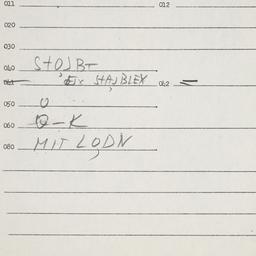 011 012
020
030
040 STOJBT
041 Ex STAJBLEX 042 =
050 U
060 O-K
080 MIT LODN